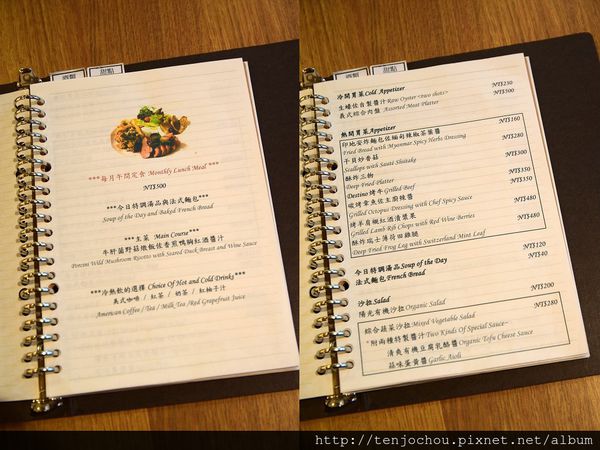 ***每月午間定食 Monthly Lunch Meal ***
NT$500
***今日特調湯品與法式麵包***
Soup of the Day and Baked French Bread
***主菜 Main Course***
牛肝菌野菇燉飯佐香煎鴨胸紅酒醬汁
Porcini Wild Mushroom Risotto with Seared Duck Breast and Wine Sauce
***冷熱飲的選擇 Choice Of Hot and Cold Drinks***
美式咖啡 / 紅茶 / 奶茶 / 紅柚子汁
American Coffee / Tea / Milk Tea /Red Grapefruit Juice
甜點
冷開胃菜Cold Appetizer
生蠔佐自製醬汁Raw Oyster <two shots> NT$250
義式綜合肉盤 Assorted Meat Platter NT$500
熱開胃菜Appetizer
印地安炸麵包佐緬甸辣椒茶葉醬 NT$160
Fried Bread with Myanmar Spicy Herbs Dressing
干貝炒香菇 NT$280
Scallops with Sauté Shiitake
酥炸三物 NT$350
Deep Fried Platter
Destino烤牛Grilled Beef NT$350
碳烤章魚佐主廚辣醬 NT$350
Grilled Octopus Dressing with Chef Spicy Sauce
烤羊肩襯紅酒漬漿果 NT$480
Grilled Lamb Rib Chops with Red Wine Berries
酥炸瑞士薄荷田雞腿 NT$480
Deep Fried Frog Leg with Switzerland Mint Leaf
今日特調湯品Soup of the Day NT$120
法式麵包French Bread NT$40
沙拉Salad
陽光有機沙拉Organic Salad NT$200
綜合蔬菜沙拉Mixed Vegetable Salad NT$280
*附兩種特製醬汁Two Kinds Of Special Sauce~
清爽有機豆腐乳酪醬Organic Tofu Cheese Sauce
蒜味蛋黃醬Garlic Aioli
http://tenjochou.pixnet.net/album